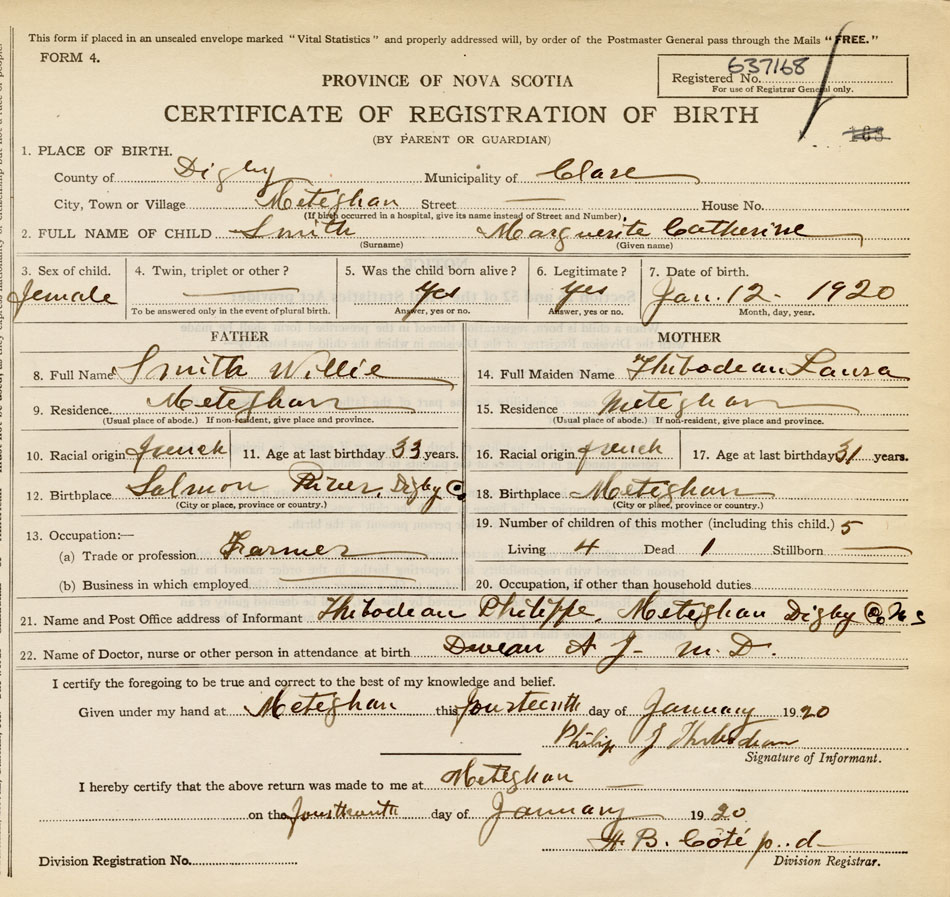 This form if placed in an unsealed envelope marked "Vital Statistics" and properly addressed will, by order of the Postmaster General pass through the Mails "FREE."
FORM 4.
PROVINCE OF NOVA SCOTIA
Registered No. 637168
For use of Registrar General only.
CERTIFICATE OF REGISTRATION OF BIRTH
(BY PARENT OR GUARDIAN)
1. PLACE OF BIRTH.
County of Digby Municipality of Clare
City, Town or Village Meteghan Street — House No.
(If birth occurred in a hospital, give its name instead of Street and Number)
2. FULL NAME OF CHILD Smith Marguerite Catherine
(Surname) (Given name)
3. Sex of child. 4. Twin, triplet or other? 5. Was the child born alive? 6. Legitimate? 7. Date of birth.
female — Yes Yes Jan. 12 - 1920
To be answered only in the event of plural birth. Answer, yes or no. Answer, yes or no. Month, day, year.
FATHER MOTHER
8. Full Name Smith Willie 14. Full Maiden Name Thibodeau Laura
9. Residence. Meteghan 15. Residence Meteghan
(Usual place of abode.) If non-resident, give place and province. (Usual place of abode.) If non-resident, give place and province.
10. Racial origin french 11. Age at last birthday 33 years. 16. Racial origin french 17. Age at last birthday 31 years.
12. Birthplace Salmon River, Digby Co. 18. Birthplace Meteghan
(City or place, province or country.) (City or place, province or country.)
13. Occupation:— 19. Number of children of this mother (including this child.) 5
(a) Trade or profession Farmer Living 4 Dead 1 Stillborn —
(b) Business in which employed. — 20. Occupation, if other than household duties
21. Name and Post Office address of Informant Thibodeau Philippe, Meteghan Digby Co N S
22. Name of Doctor, nurse or other person in attendance at birth A J - M. D.
I certify the foregoing to be true and correct to the best of my knowledge and belief.
Given under my hand at Meteghan this fourteenth day of January 1920
Philip J Thibodeau
Signature of Informant.
I hereby certify that the above return was made to me at Meteghan
on the fourteenth day of January 1920
H B. Côté p..d
Division Registration No. Division Registrar.